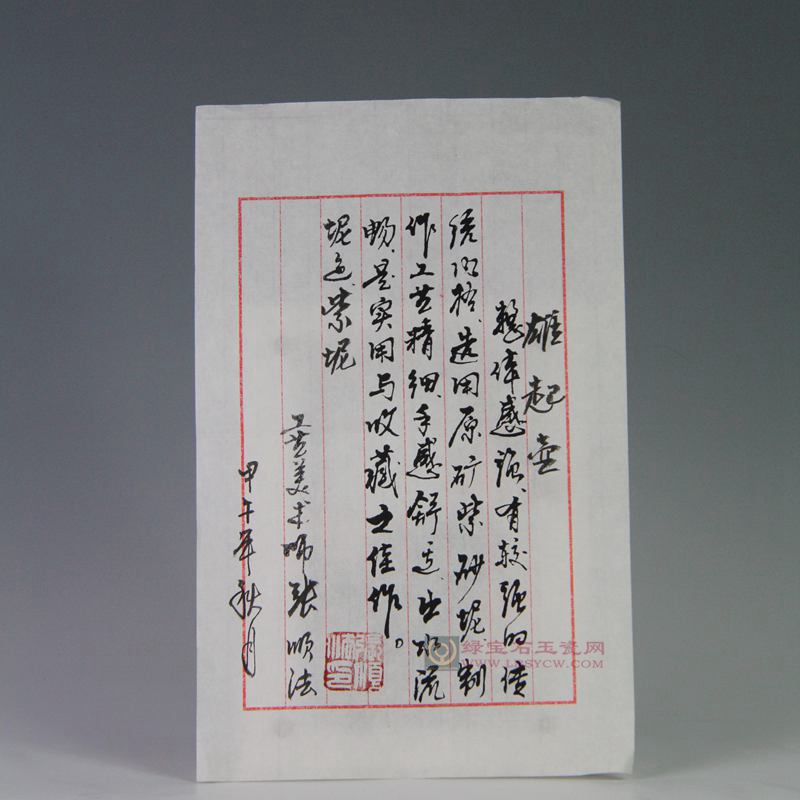 雄起壶
整体感强、有较强的传
统风格、选用原矿紫砂坭制
作工艺精细、手感舒适、出水流
畅、是实用与收藏之佳作。
坭色、紫坭
工艺美术师张顺法
甲午年秋月
张顺
法印
绿宝石玉瓷网
WWW.LBSYCW.COM